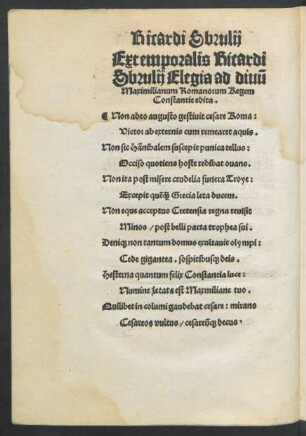 Ricardi Sbrulij
Extemporalis Ricardi
Sbrulij Elegia ad diuũ
Maximilianum Romanorum Regem
Constantie edita.
¶ Non adeo augusto gestiuit cesare Roma:
Victor ab externis cum remearet aquis.
Non sic Hãnibalem suscepit punica tellus:
Occiso quotiens hoste redibat ouans.
Non ita post misere crudelia funera Troye:
Excepit quẽq̃ Grecia leta ducem.
Non eque acceptus Cretensia regna reuisit
Minos / post belli parta trophea sui.
Deniq; non tantum domus exultauit olympi:
Cede gigantea. sospitibusq; deis.
Hesterna quantum felix Constantia luce:
Numine letata est Maxmiliane tuo.
Quilibet in columi gaudebat cesare: mirans
Cesareos vultus / cesareũq; decus.